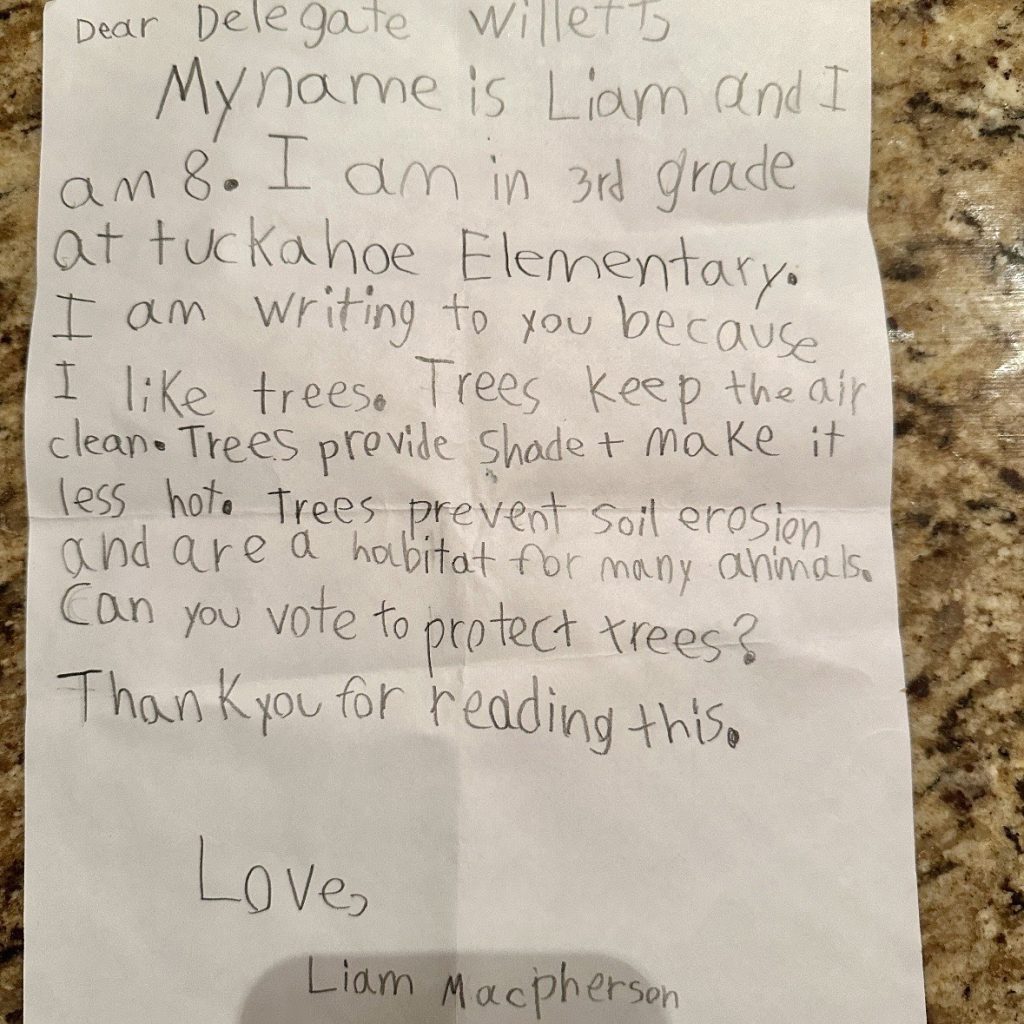 Dear Delegate Willett,
My name is Liam and I
am 8. I am in 3rd grade
at tuckahoe Elementary.
I am writing to you because
I like trees. Trees keep the air
clean. Trees provide shade + make it
less hot. Trees prevent soil erosion
and are a habitat for many animals.
Can you vote to protect trees?
Thank you for reading this.
Love,
Liam Macpherson